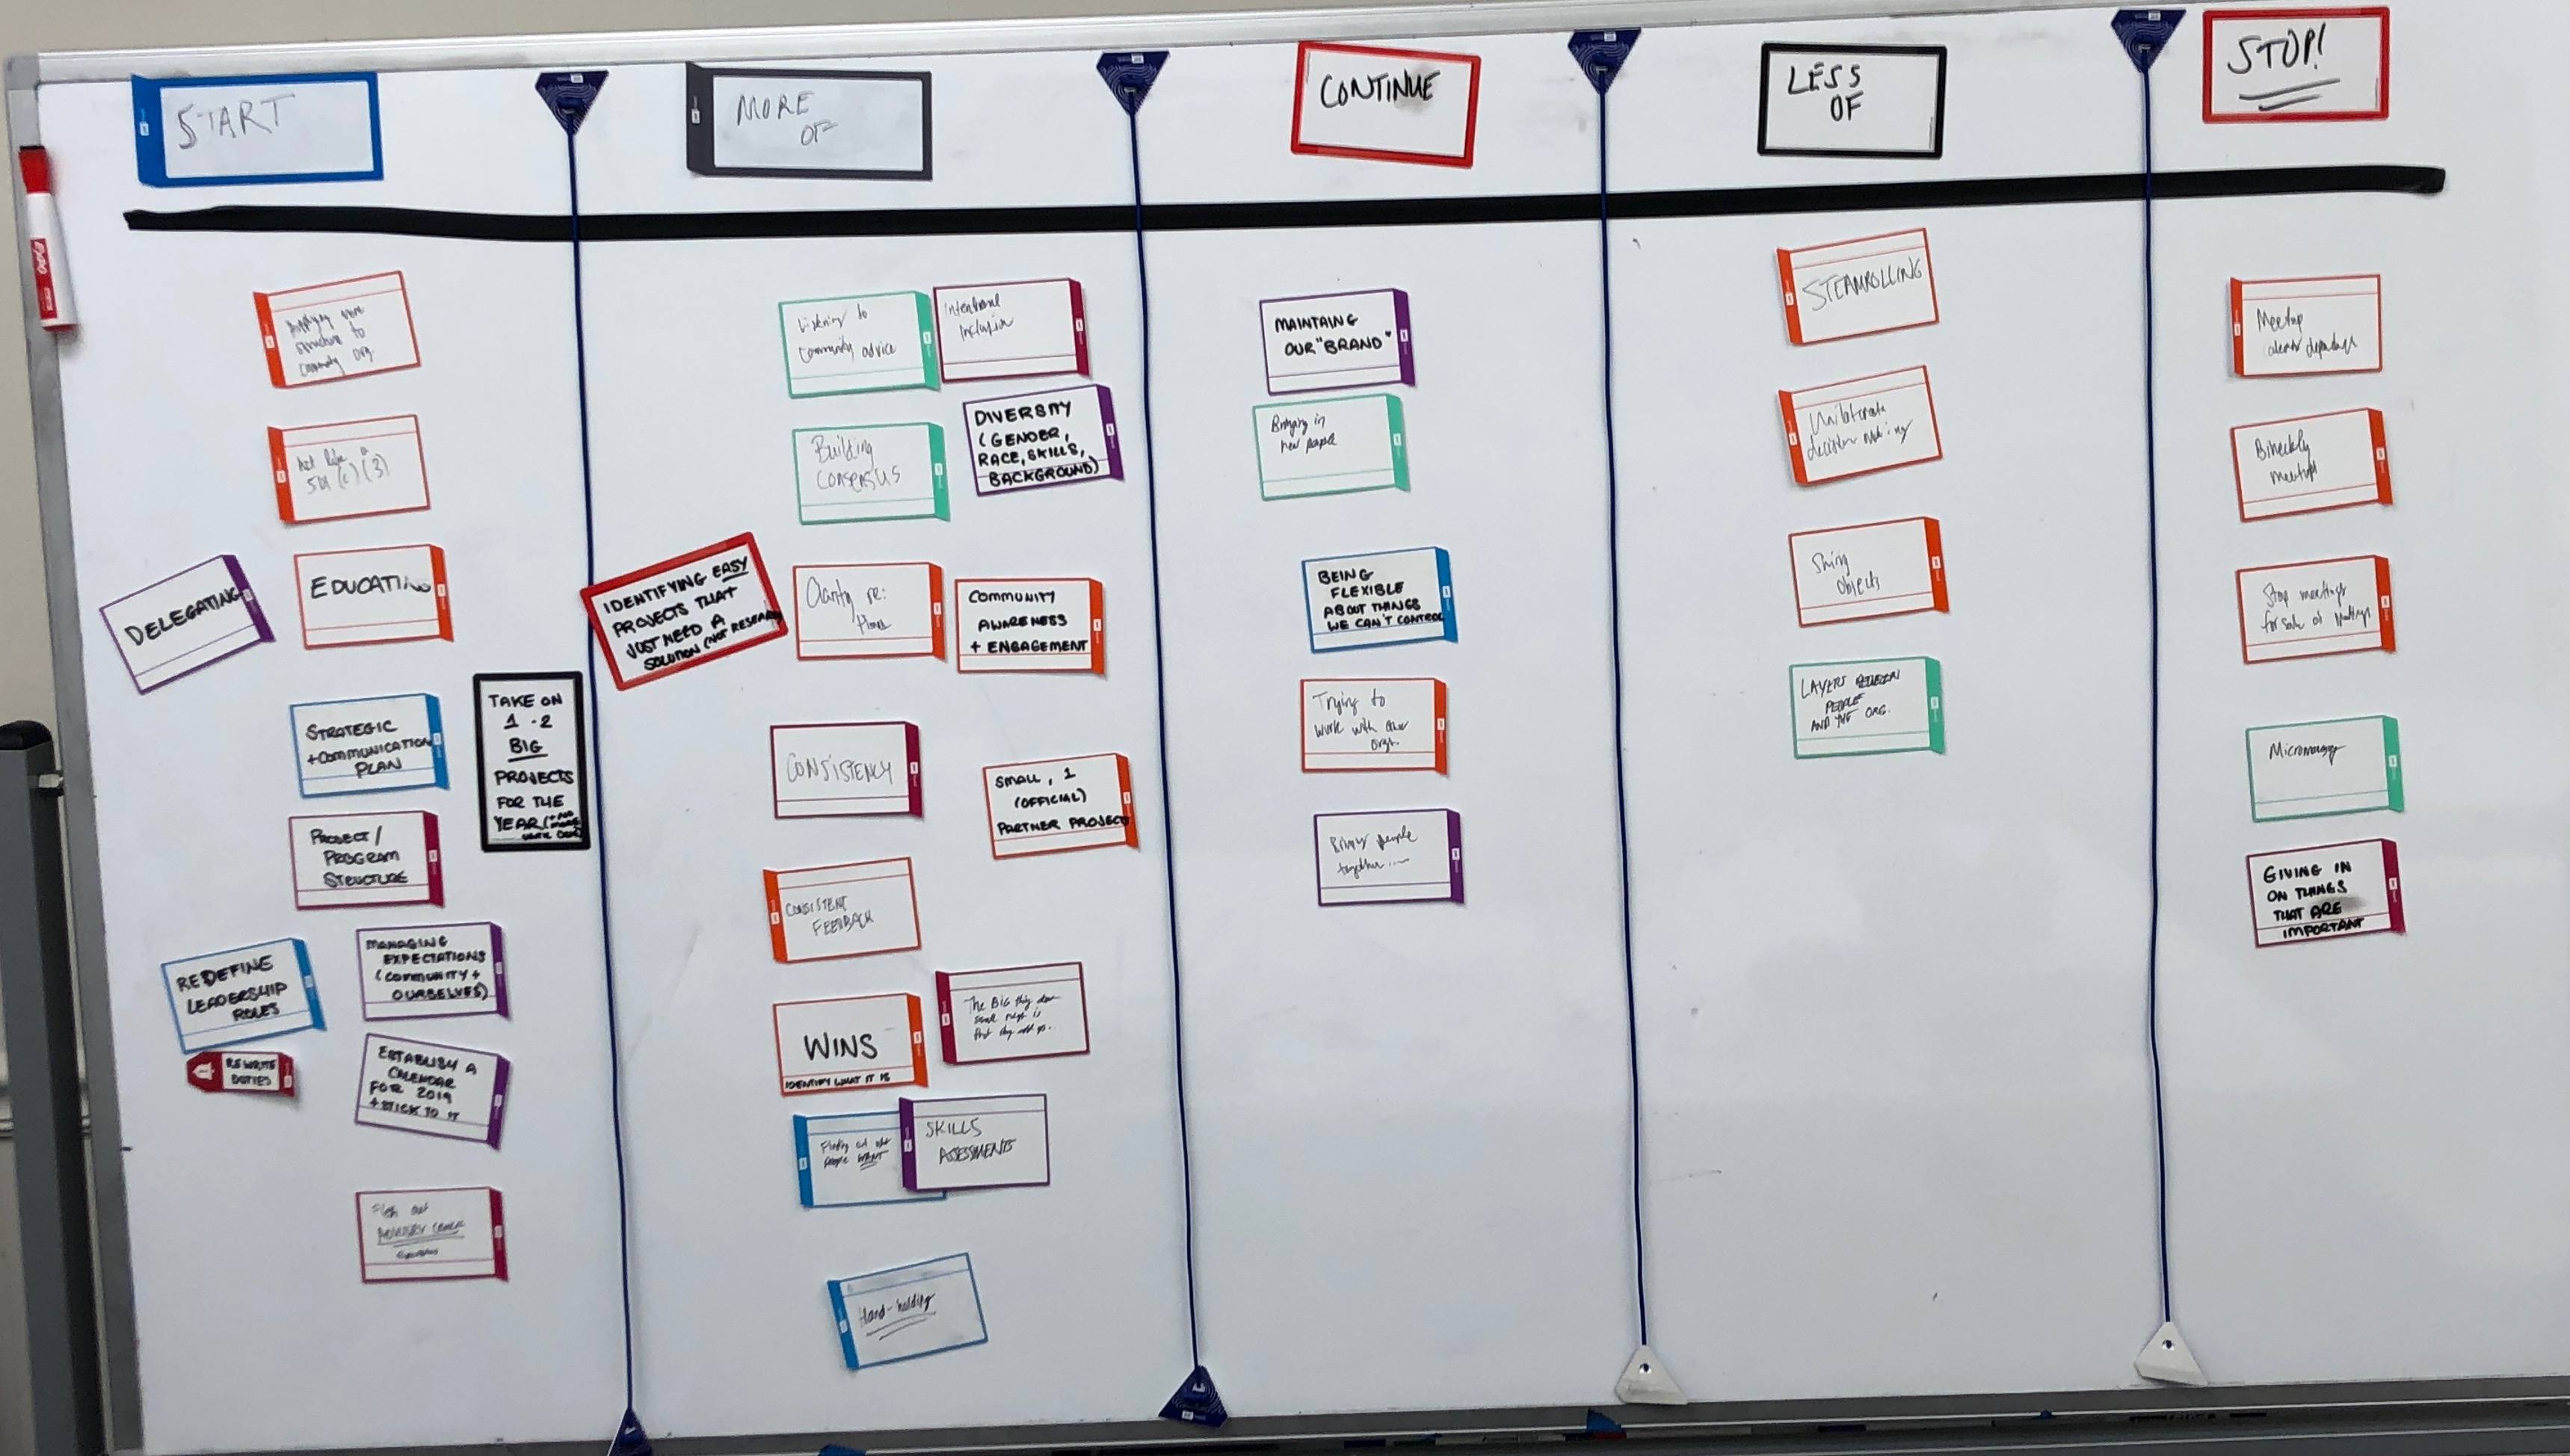 START
MORE
OF
CONTINUE
LESS
OF
STOP!
Applying more
structure to
community org.
Act like a
501(c)(3)
DELEGATING
EDUCATING
STRATEGIC
+COMMUNICATION
PLAN
TAKE ON
1-2
BIG
PROJECTS
FOR THE
YEAR
PROJECT/
PROGRAM
STRUCTURE
REDEFINE
LEADERSHIP
ROLES
REWRITE
DUTIES
MANAGING
EXPECTATIONS
(COMMUNITY +
OURSELVES)
ESTABLISH A
CALENDAR
FOR 2019
+ STICK TO IT
Flesh out
Listening to
community advice
Intentional
Inclusion
Building
Consensus
DIVERSITY
(GENDER,
RACE, SKILLS,
BACKGROUND)
IDENTIFYING EASY
PROJECTS THAT
JUST NEED A
SOLUTION (NOT RESEARCH
Clarity re:
COMMUNITY
AWARENESS
+ ENGAGEMENT
CONSISTENCY
SMALL, 1
(OFFICIAL)
PARTNER PROJECT
CONSISTENT
FEEDBACK
WINS
IDENTIFY WHAT IT IS
The Big thing
Finding out what
people WANT
SKILLS
ASSESSMENTS
Hand-holding
MAINTAING
OUR "BRAND"
Bringing in
new people
BEING
FLEXIBLE
ABOUT THINGS
WE CAN'T CONTROL
Trying to
work with other
orgs.
people
together
STEAMROLLING
Unilateral
decision making
Shiny
objects
LAYERS BETWEEN
PEOPLE
AND THE ORG.
Meetup
Biweekly
meetups
Stop meetings
for sake of Meetings
GIVING IN
ON THINGS
THAT ARE
IMPORTANT